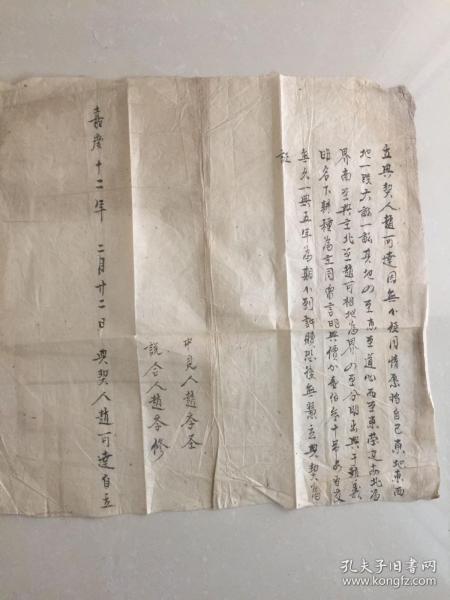 立典契人趙可達因無小從同情原將自己東地東西
地一段六畝一畝其地四至東至道心西至東榮文南北為
界南至典主北至趙可相地為界四至分明出典于趙義
名下耕種為主同眾言明典價小叁伯叁十吊
無欠一典五年為期不到許贖恐後無憑立典契為
証
中見人趙李圣
說合人趙李修
嘉慶十二年 二月廿二日 典契人趙可達自立
孔夫子旧书网
www.kongfz.com